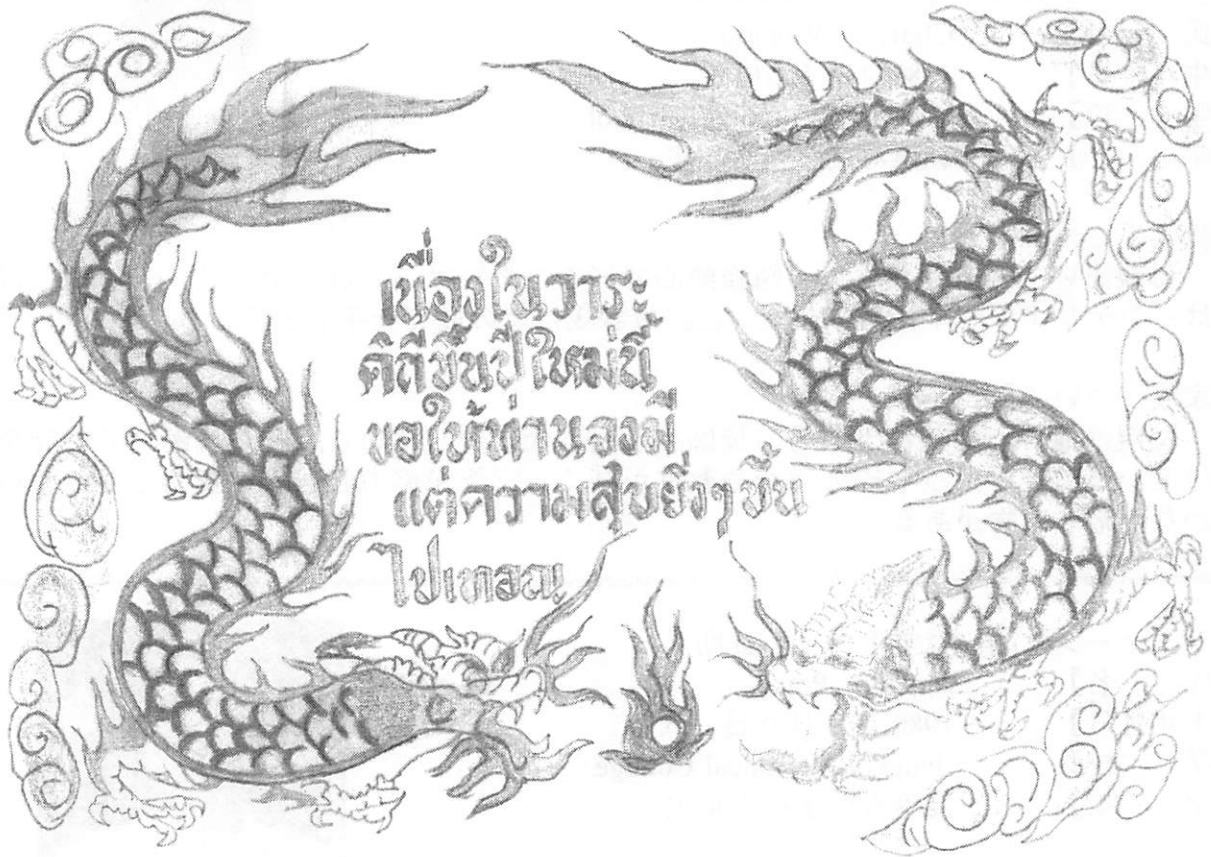 เนื่องในวาระ
ดิถีขึ้นปีใหม่นี้
ขอให้ท่านจงมี
แต่ความสุขยิ่งๆขึ้น
ไปเทอญ